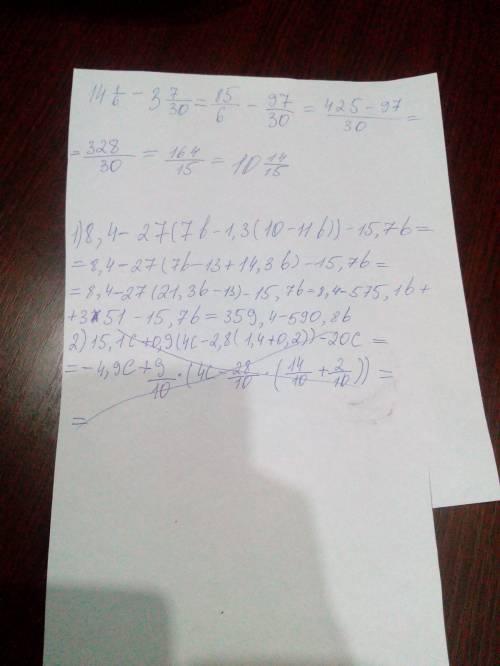 14 1/6 - 3 7/30 = 85/6 - 97/30 = 425-97/30 =
= 328/30 = 164/15 = 10 14/15
1) 8,4 - 27(7b - 1,3(10 - 11b)) - 15,7b =
= 8,4 - 27(7b - 13 + 14,3b) - 15,7b =
= 8,4 - 27(21,3b - 13) - 15,7b = 8,4 - 575,1b +
+ 351 - 15,7b = 359,4 - 590,8b
2) 15,1c + 0,9(4c - 2,8(1,4 + 0,2)) - 20c =
= -4,9c + 9/10 · (4c - 28/10 · (14/10 + 2/10)) =
=